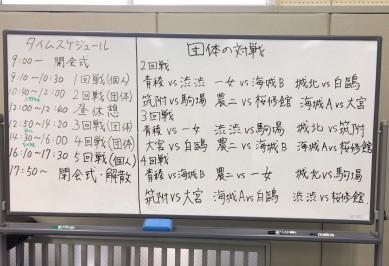 タイムスケジュール
9:00〜 開会式
9:10〜10:30 1回戦(個人)
10:40〜12:00 2回戦(団体)
12:00〜12:40 昼休憩
12:50〜14:20 3回戦(団体)
14:30〜16:00 4回戦(団体)
16:10〜17:30 5回戦(個人)
17:50〜 閉会式・解散
団体の対戦
2回戦
青稜vs渋渋 一女vs海城B 城北vs白鷗
筑附vs駒場 農二vs桜修館 海城Avs大宮
3回戦
青稜vs一女 渋渋vs駒場 城北vs筑附
大宮vs白鷗 農二vs海城B 海城Avs桜修館
4回戦
青稜vs海城B 農二vs一女 城北vs駒場
筑附vs大宮 海城Avs白鷗 渋渋vs桜修館